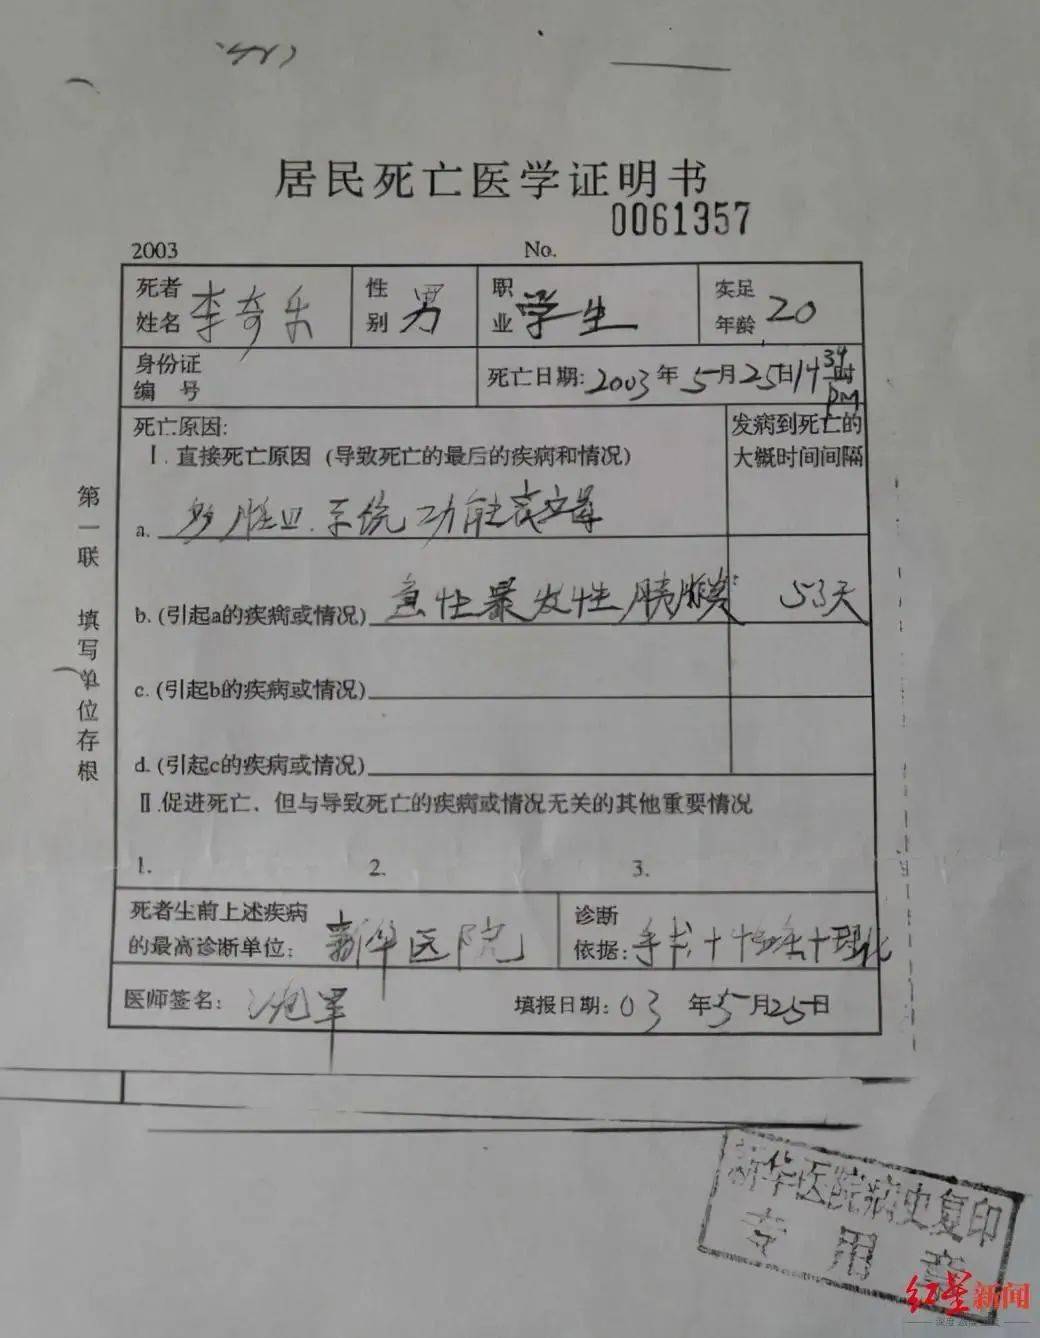 居民死亡医学证明书
0061357
2003 No.
死者姓名 李奇乐 性别 男 职业 学生 实足年龄 20
身份证编号 死亡日期: 2003年5月25日14时34 PM
死亡原因: 发病到死亡的大概时间间隔
Ⅰ.直接死亡原因 (导致死亡的最后的疾病和情况)
a. 多脏四.系统功能衰竭
b.(引起a的疾病或情况) 急性暴发性胰腺炎 53天
c.(引起b的疾病或情况)
d.(引起c的疾病或情况)
Ⅱ.促进死亡、但与导致死亡的疾病或情况无关的其他重要情况
1. 2. 3.
死者生前上述疾病的最高诊断单位: 新华医院 诊断依据: 手术+ +理化
医师签名: 填报日期: 03年5月25日
第一联 填写单位存根
新华医院病史复印
专用章
红星新闻